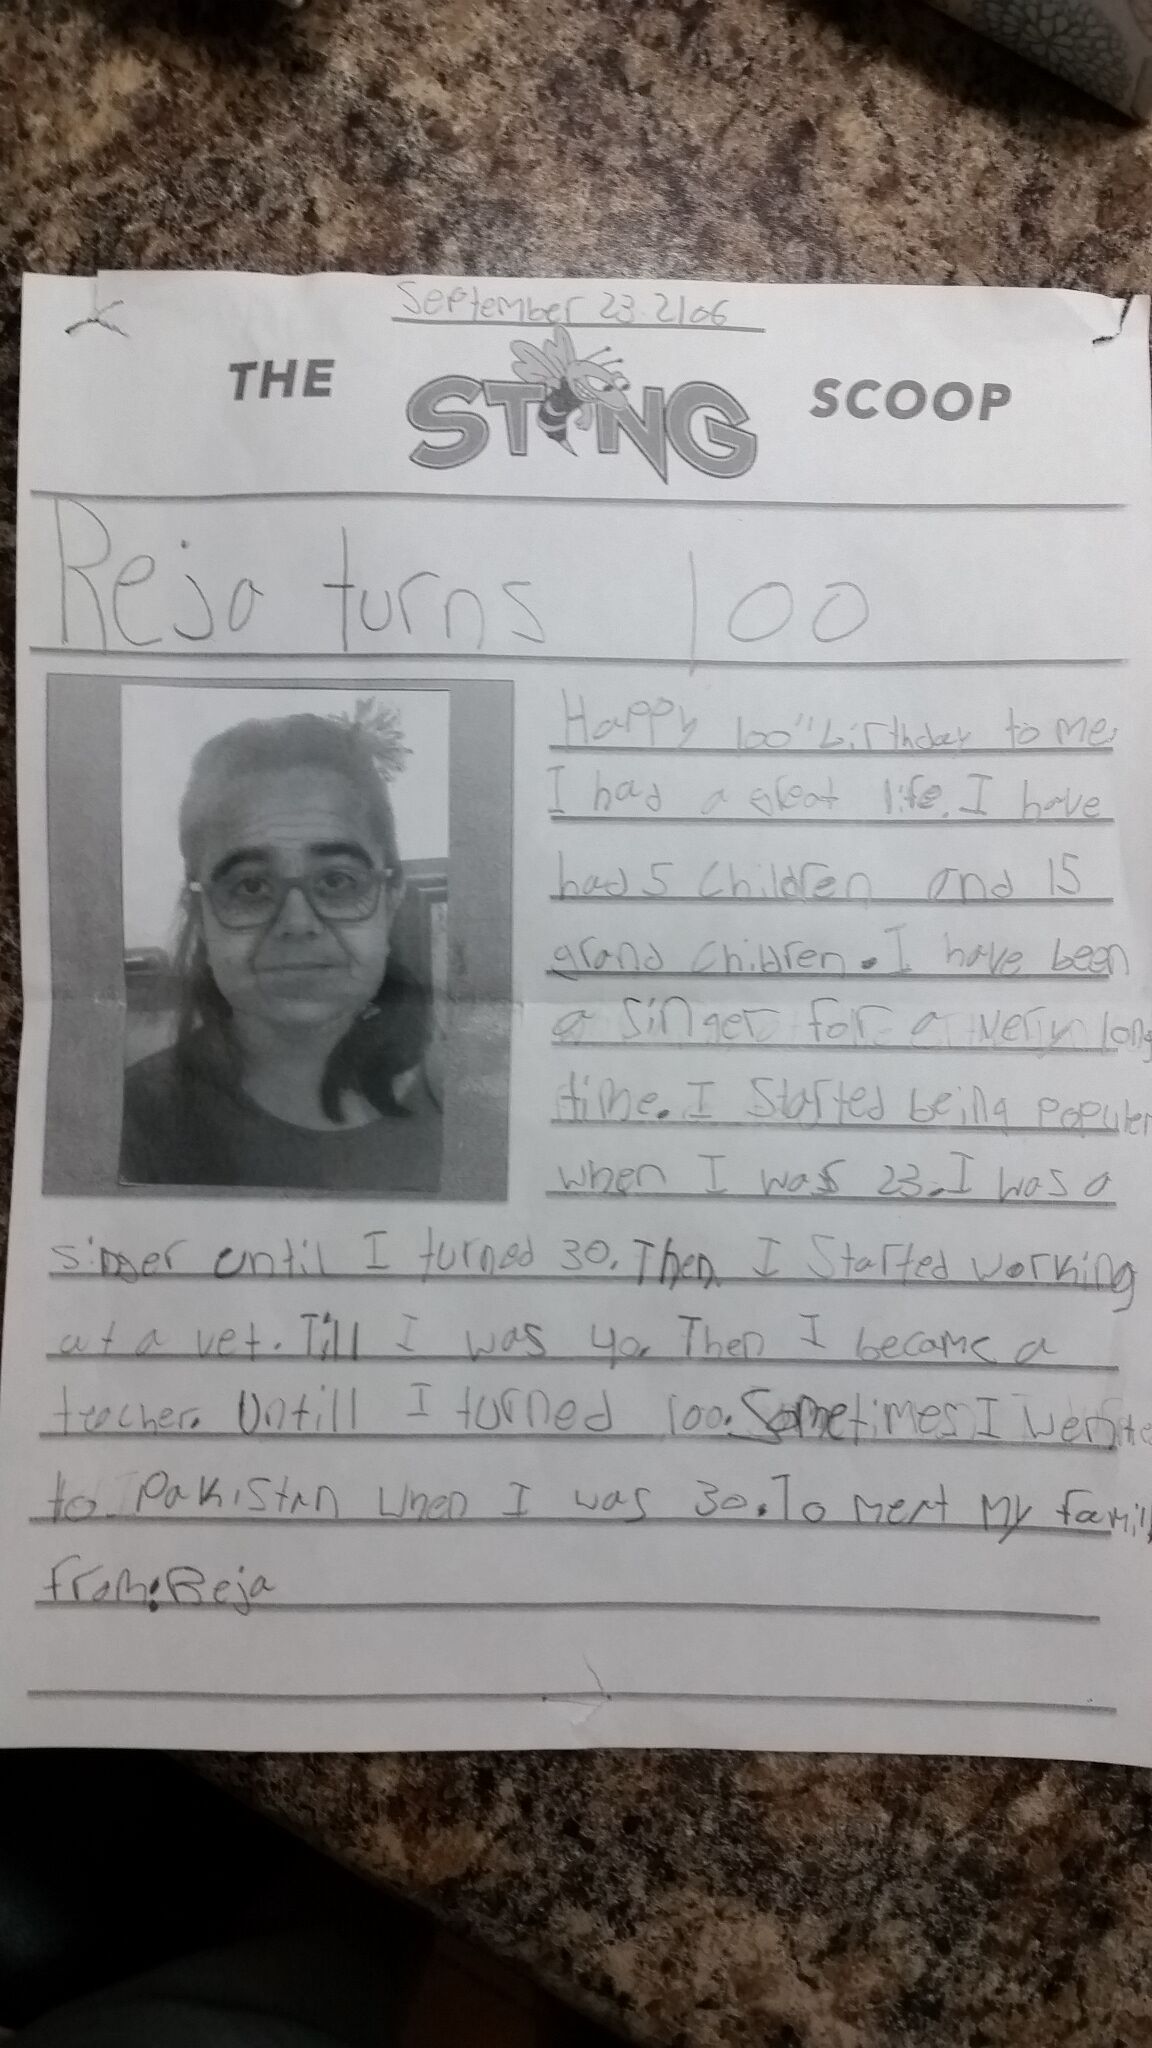 September 23. 2106
THE STING SCOOP
Reja turns 100
Happy 100" birthday to me.
I had a great life. I have
had 5 children and 15
grand children. I have been
a singer for a very long
time. I Started being populer
when I was 23. I was a
singer until I turned 30. Then I Started working
at a vet. Till I was 40. Then I became a
teacher. Untill I turned 100. Sometimes I
to Pakistan when I was 30. To meet my famil
from: Reja